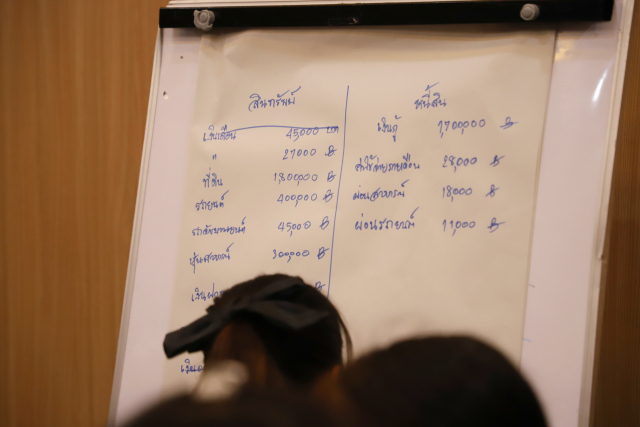 สินทรัพย์
เงินเดือน 45,000 บาท
" 27000 ฿
ที่ดิน 1,800,000 ฿
รถยนต์ 400,000 ฿
รถจักรยานยนต์ 45,000 ฿
หุ้นสหกรณ์ 300,000 ฿
฿
หนี้สิน
เงินกู้ 1,700,000 ฿
ค่าใช้จ่ายรายเดือน 28,000 ฿
ผ่อนสหกรณ์ 18,000 ฿
ผ่อนรถยนต์ 11,000 ฿